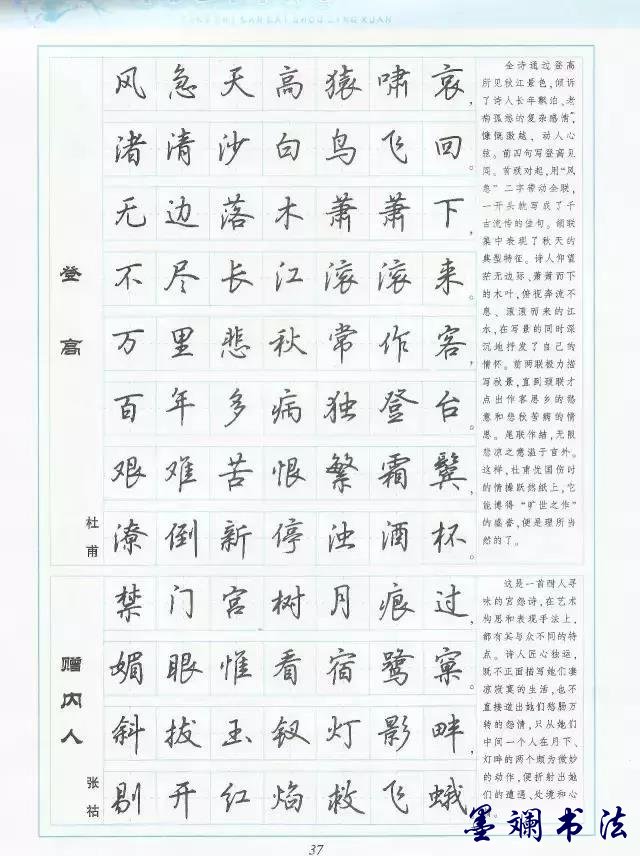 TANG SHI SAN BAI SHOU JING XUAN
登高
杜甫
风急天高猿啸哀，
渚清沙白鸟飞回。
无边落木萧萧下，
不尽长江滚滚来。
万里悲秋常作客，
百年多病独登台。
艰难苦恨繁霜鬓，
潦倒新停浊酒杯。
全诗通过登高
所见秋江景色，倾诉
了诗人长年飘泊、老
病孤愁的复杂感情，
慷慨激越、动人心
弦。前四句写登高见
闻。首联对起，用“风
急”二字带动全联，
一开头就写成了千
古流传的佳句。颔联
集中表现了秋天的
典型特征。诗人仰望
茫无边际、萧萧而下
的木叶，俯视奔流不
息、滚滚而来的江
水，在写景的同时深
沉地抒发了自己的
情怀。前两联极力描
写秋景，直到颈联才
点出作客思乡的愁
意和悲秋苦病的情
思。尾联作结，无限
悲凉之意溢于言外。
这样，杜甫忧国伤时
的情操跃然纸上，它
能博得“旷世之作”
的盛誉，便是理所当
然的了。
赠内人
张祜
禁门宫树月痕过，
媚眼惟看宿鹭窠。
斜拔玉钗灯影畔，
剔开红焰救飞蛾。
这是一首耐人寻
味的宫怨诗，在艺术
构思和表现手法上，
都有其与众不同的特
点。诗人匠心独运，
既不正面描写她们凄
凉寂寞的生活，也不
直接道出她们愁肠万
转的怨情，只从她们
中间一个人在月下、
灯畔的两个颇为微妙
的动作，便折射出她
们的遭遇、处境和心
墨斓书法
37